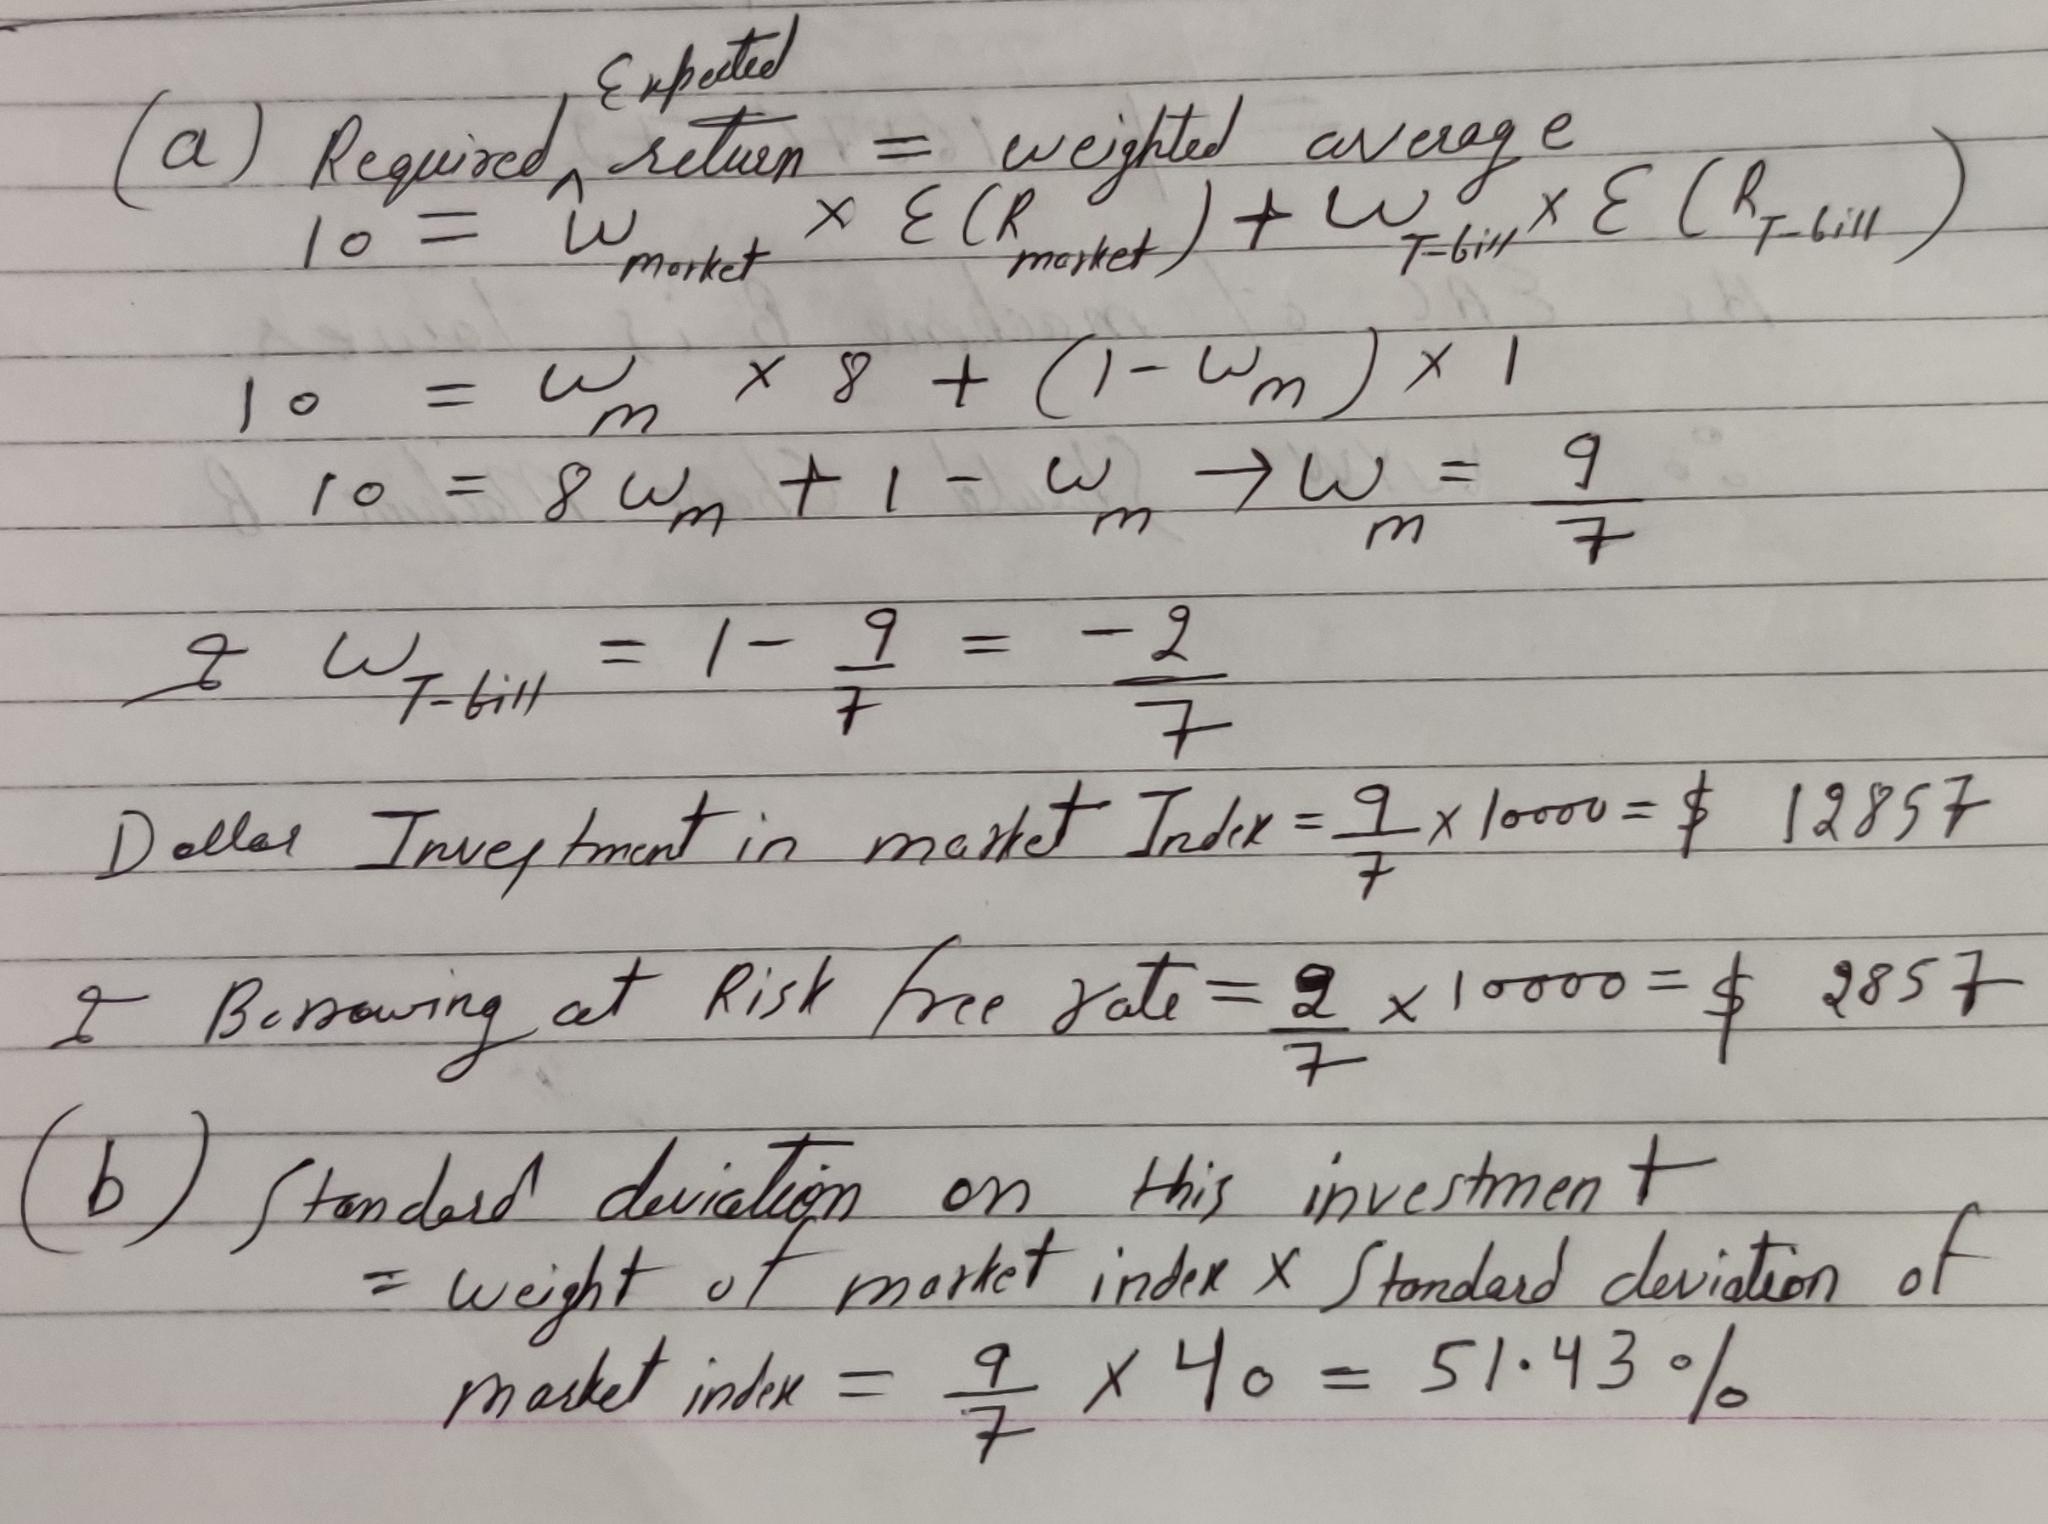 (a) Required ^ Expected return = weighted average
10 = W market × E(R market) + W T-bill × E(R T-bill)
10 = Wm × 8 + (1 - Wm) × 1
10 = 8 Wm + 1 - Wm → Wm = 9/7
& W T-bill = 1 - 9/7 = -2/7
Dollar Investment in market Index = 9/7 × 10000 = $ 12857
& Borrowing at Risk free rate = 2/7 × 10000 = $ 2857
(b) Standard deviation on this investment
= weight of market index × Standard deviation of
market index = 9/7 × 40 = 51.43 %